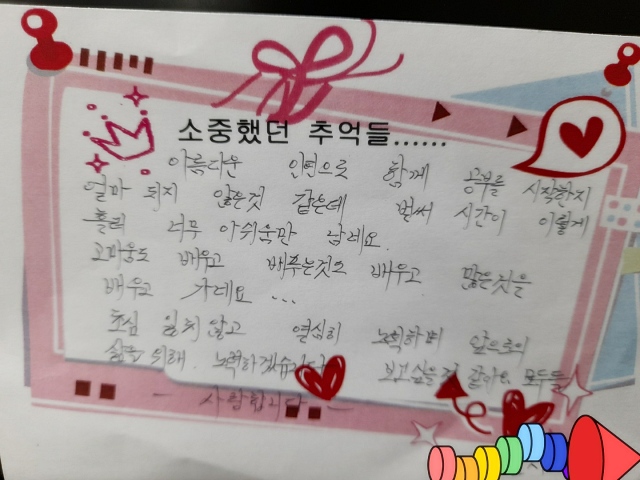 소중했던 추억들......
아름다운 인연으로 함께 공부를 시작한지
얼마 되지 않은것 같은데 벌써 시간이 이렇게
흘러 너무 아쉬움만 남네요.
고마움도 배우고 베푸는것도 배우고 많은것을
배우고 가네요 ...
초심 잃지 않고 열심히 노력하며 앞으로의
삶을 위해 노력하겠습니다 보고싶을것 같아요. 모두들
- 사랑합니다 -